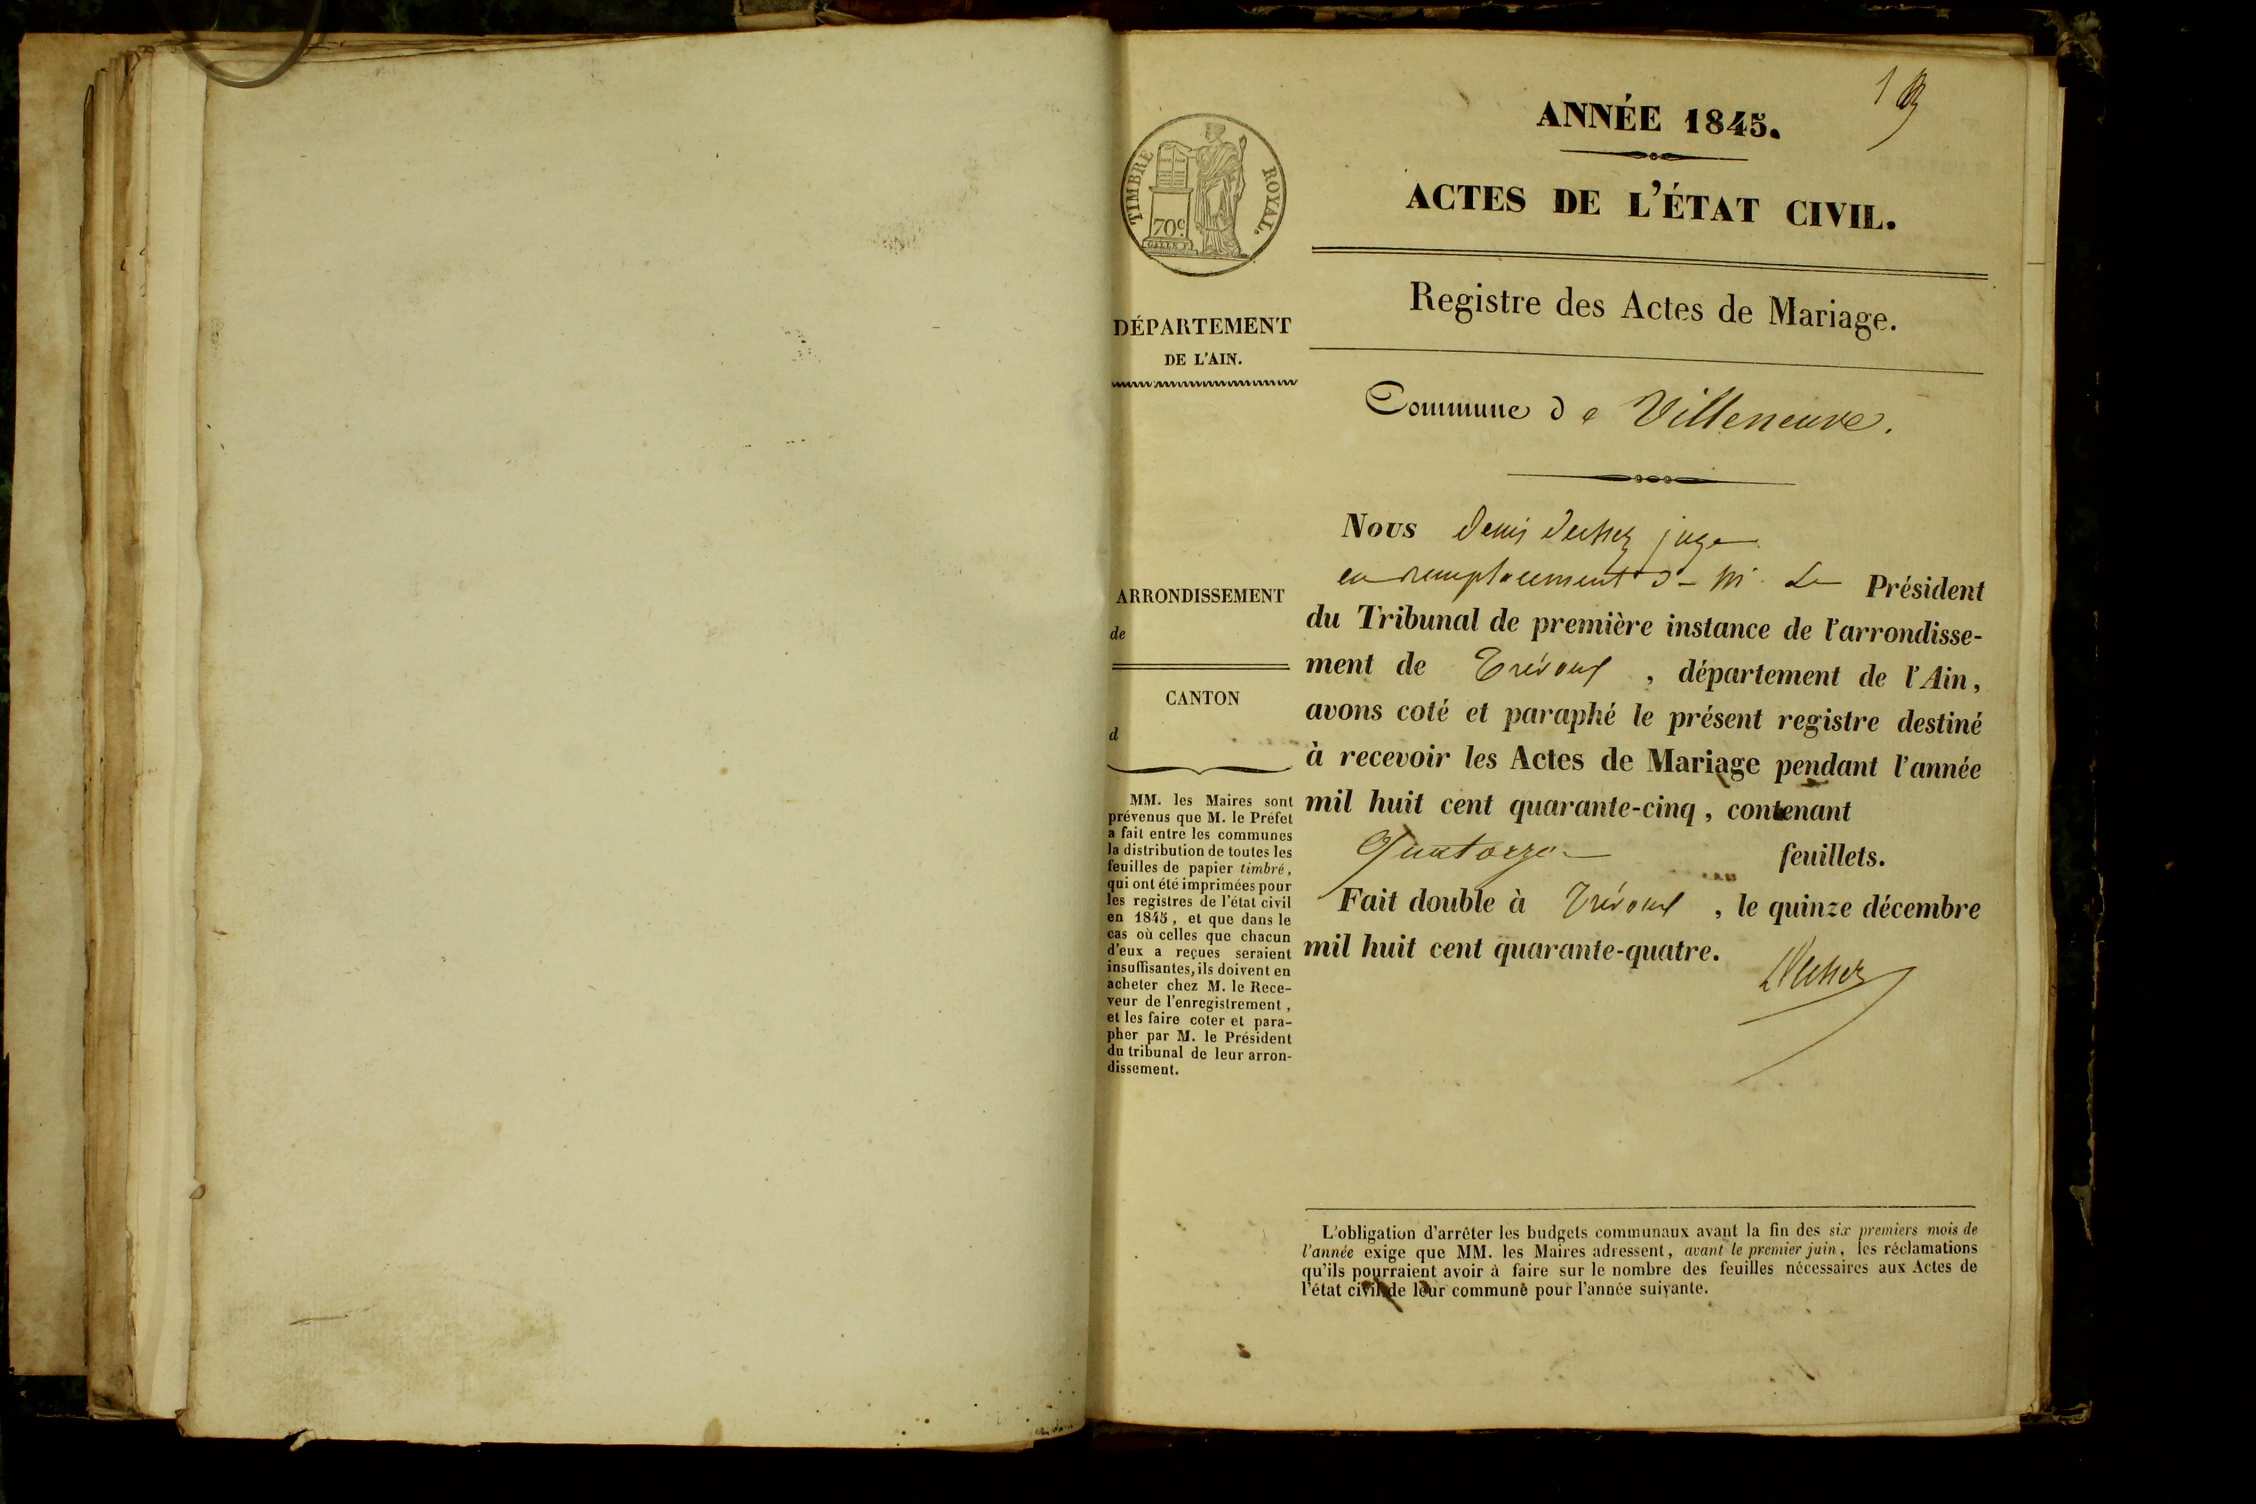 1
ANNÉE 1845.
ACTES DE L'ÉTAT CIVIL.
Registre des Actes de Mariage.
Commune de Villeneuve.
TIMBRE ROYAL.
70c
DÉPARTEMENT
DE L'AIN.
ARRONDISSEMENT
de
CANTON
d
MM. les Maires sont
prévenus que M. le Préfet
a fait entre les communes
la distribution de toutes les
feuilles de papier timbré,
qui ont été imprimées pour
les registres de l'état civil
en 1845, et que dans le
cas où celles que chacun
d'eux a reçues seraient
insuffisantes, ils doivent en
acheter chez M. le Rece-
veur de l'enregistrement,
et les faire coter et para-
pher par M. le Président
du tribunal de leur arron-
dissement.
Nous Denis juge
en remplacement de M. Le Président
du Tribunal de première instance de l'arrondisse-
ment de Trévoux, département de l'Ain,
avons coté et paraphé le présent registre destiné
à recevoir les Actes de Mariage pendant l'année
mil huit cent quarante-cinq, contenant
Quatorze feuillets.
Fait double à Trévoux, le quinze décembre
mil huit cent quarante-quatre.
L'obligation d'arrêter les budgets communaux avant la fin des six premiers mois de
l'année exige que MM. les Maires adressent, avant le premier juin, les réclamations
qu'ils pourraient avoir à faire sur le nombre des feuilles nécessaires aux Actes de
l'état civil de leur commune pour l'année suivante.